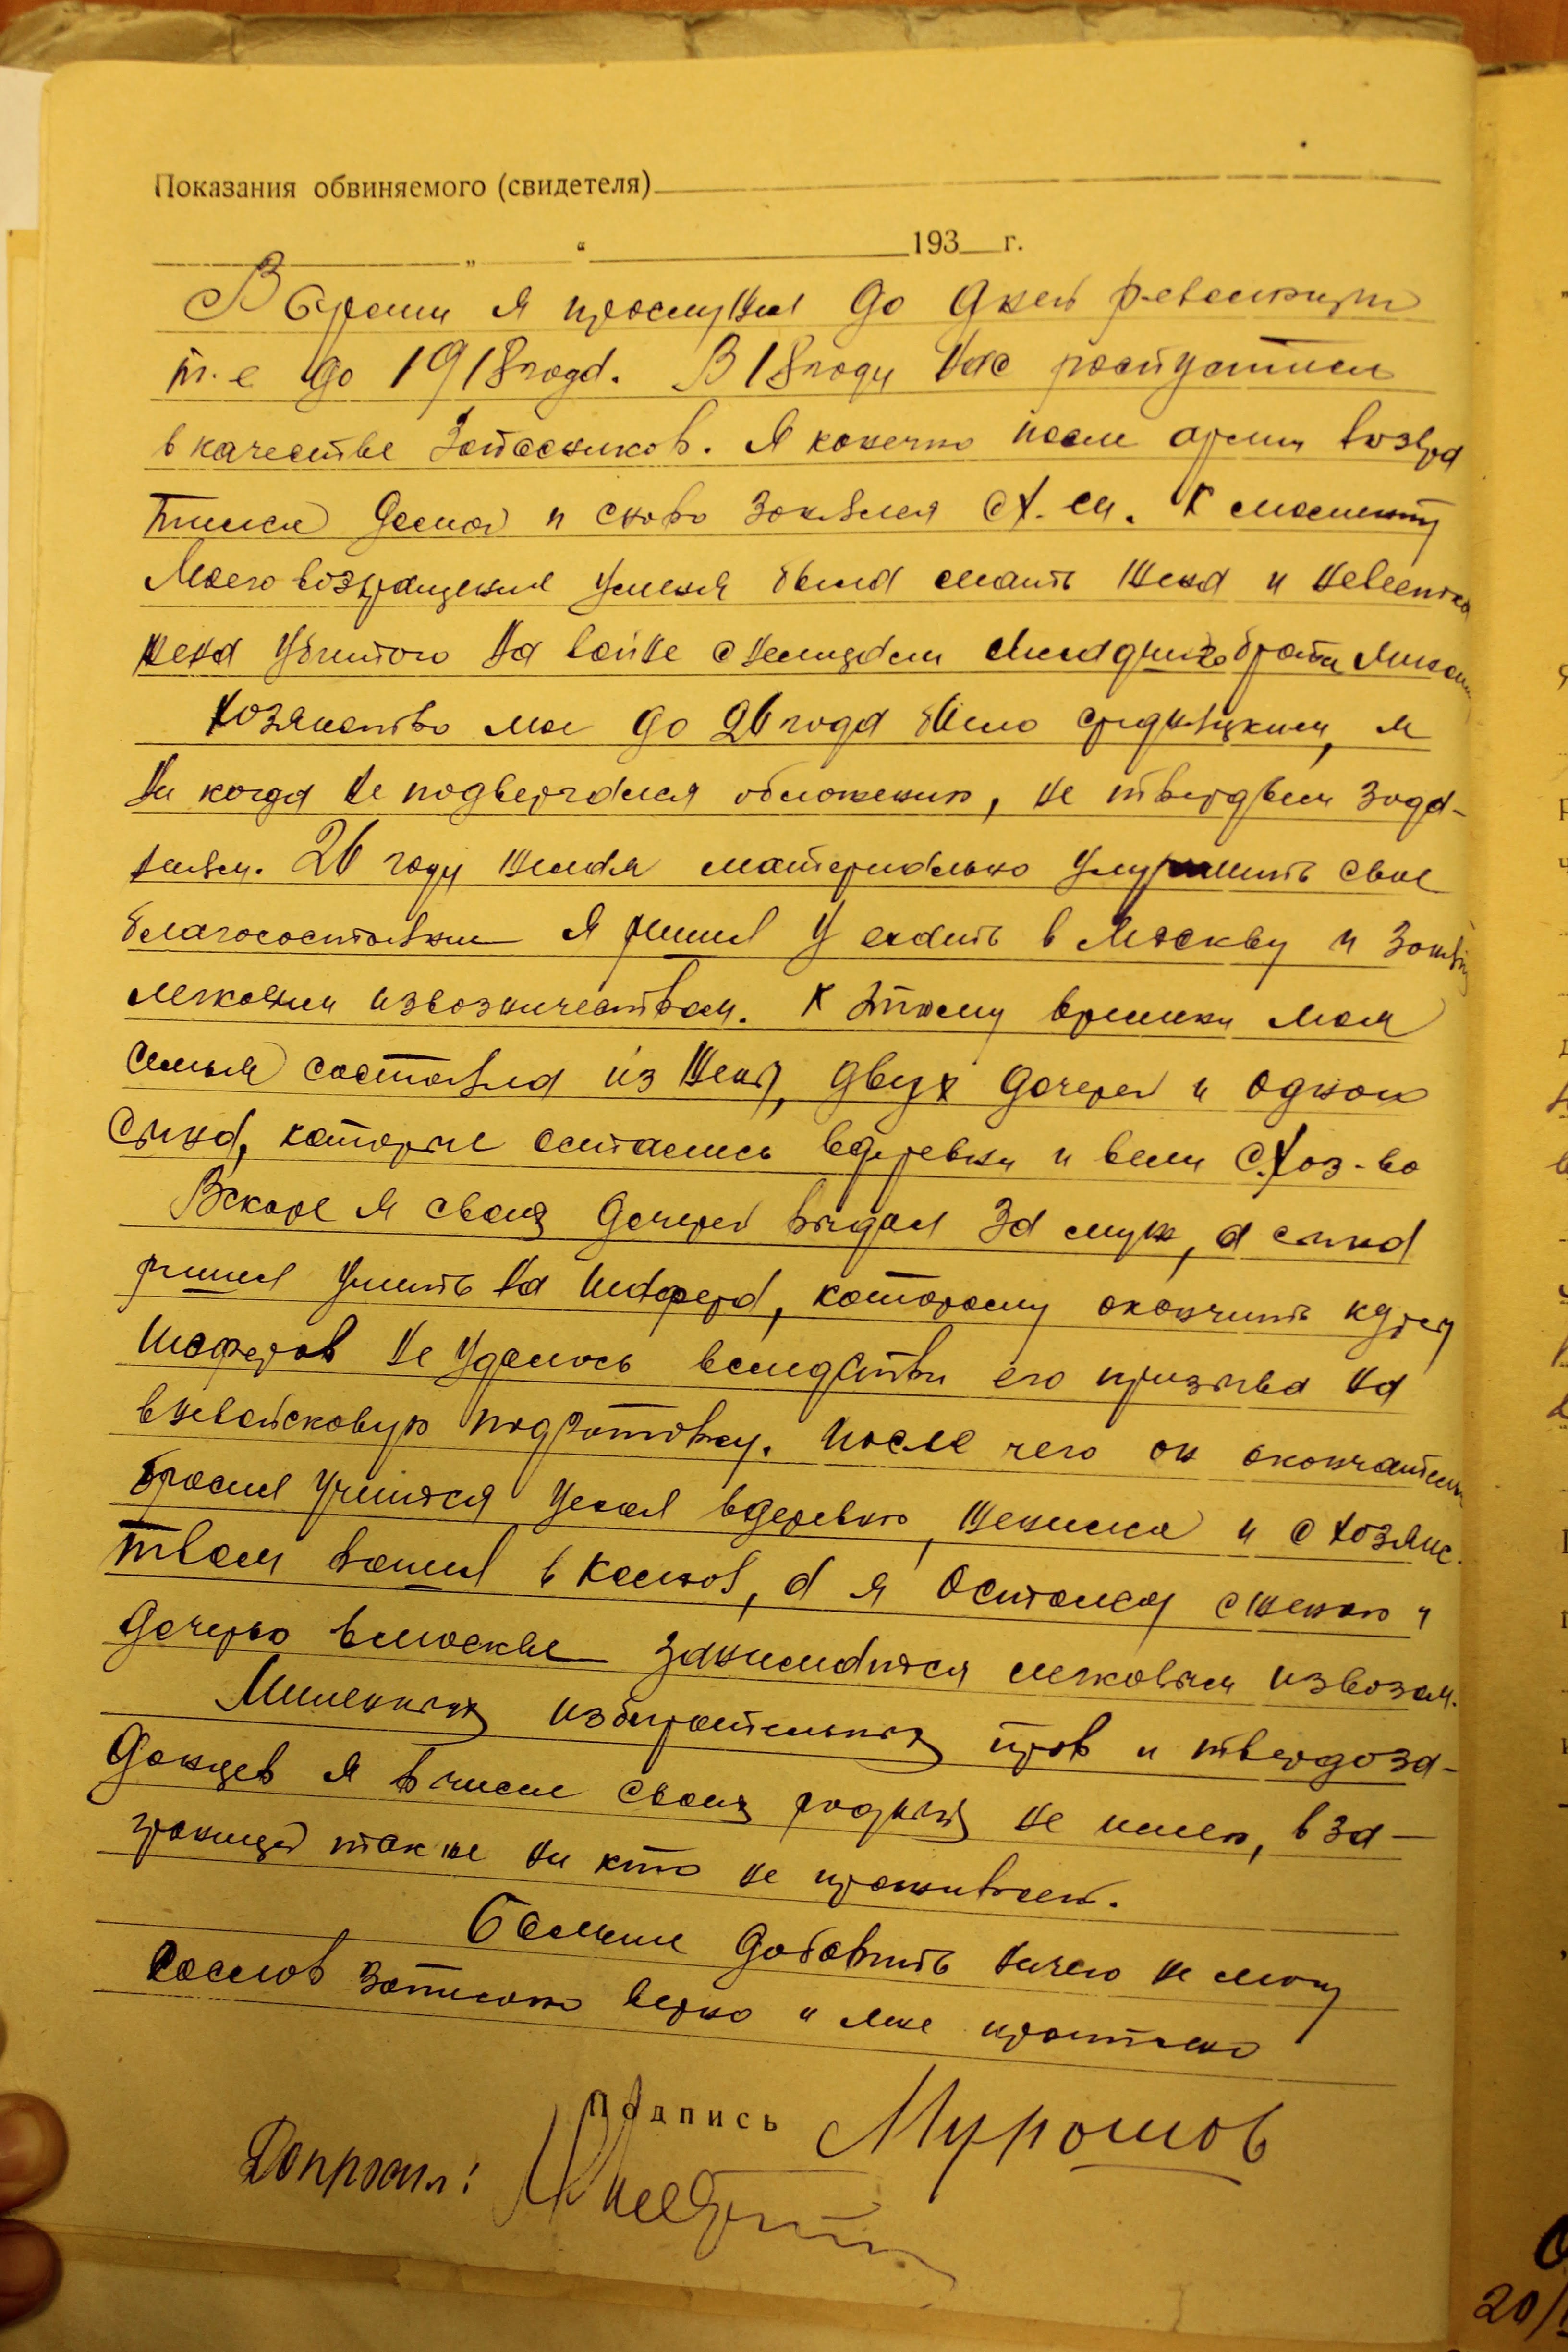 Показания обвиняемого (свидетеля)
„ “ 193 г.
В армии я прослужил до дней революции
т.е до 1918 года. В 18 году нас роспустили
в качестве запасников. Я конечно после армии возвра
тился домой и снова занялся с.х-ем. К моменту
Моего возвращения уменя была мать жена и невестка
жена убитого на войне снемцами младшего брата
Хозяйство мое до 26 года было средняцким, и
ни когда не подвергался обложению, не твердым зада-
ниям. 26 году желая материально улучшить свое
благосостояние я решил у ехать в Москву и
легковым извозничеством. К этому времени моя
семья состояла из жены, двух дочерей и одного
сына, которые остались вдеревни и вели с.хоз-во
Вскоре я своих дочерей выдал за муж, а сына
решил учить на шофера, которому окончить курсы
шоферов не удалось вследстви его призыва на
вневойсковую подготовку. После чего он окончательн
бросил учится уехал вдеревню, женился и с хозяйс-
твом вошел в колхоз, а я остался сженою и
дочерью вмоскве занимаятся легковым извозом.
Лишенных избирательных прав и твердоза-
данцев я в числе своих родных не имею, в за-
границей так же ни кто не проживает.
Больше добавить ничего не могу
с слов записано верно и мне прочитано
подпись Мурашов
Допросил:
20/